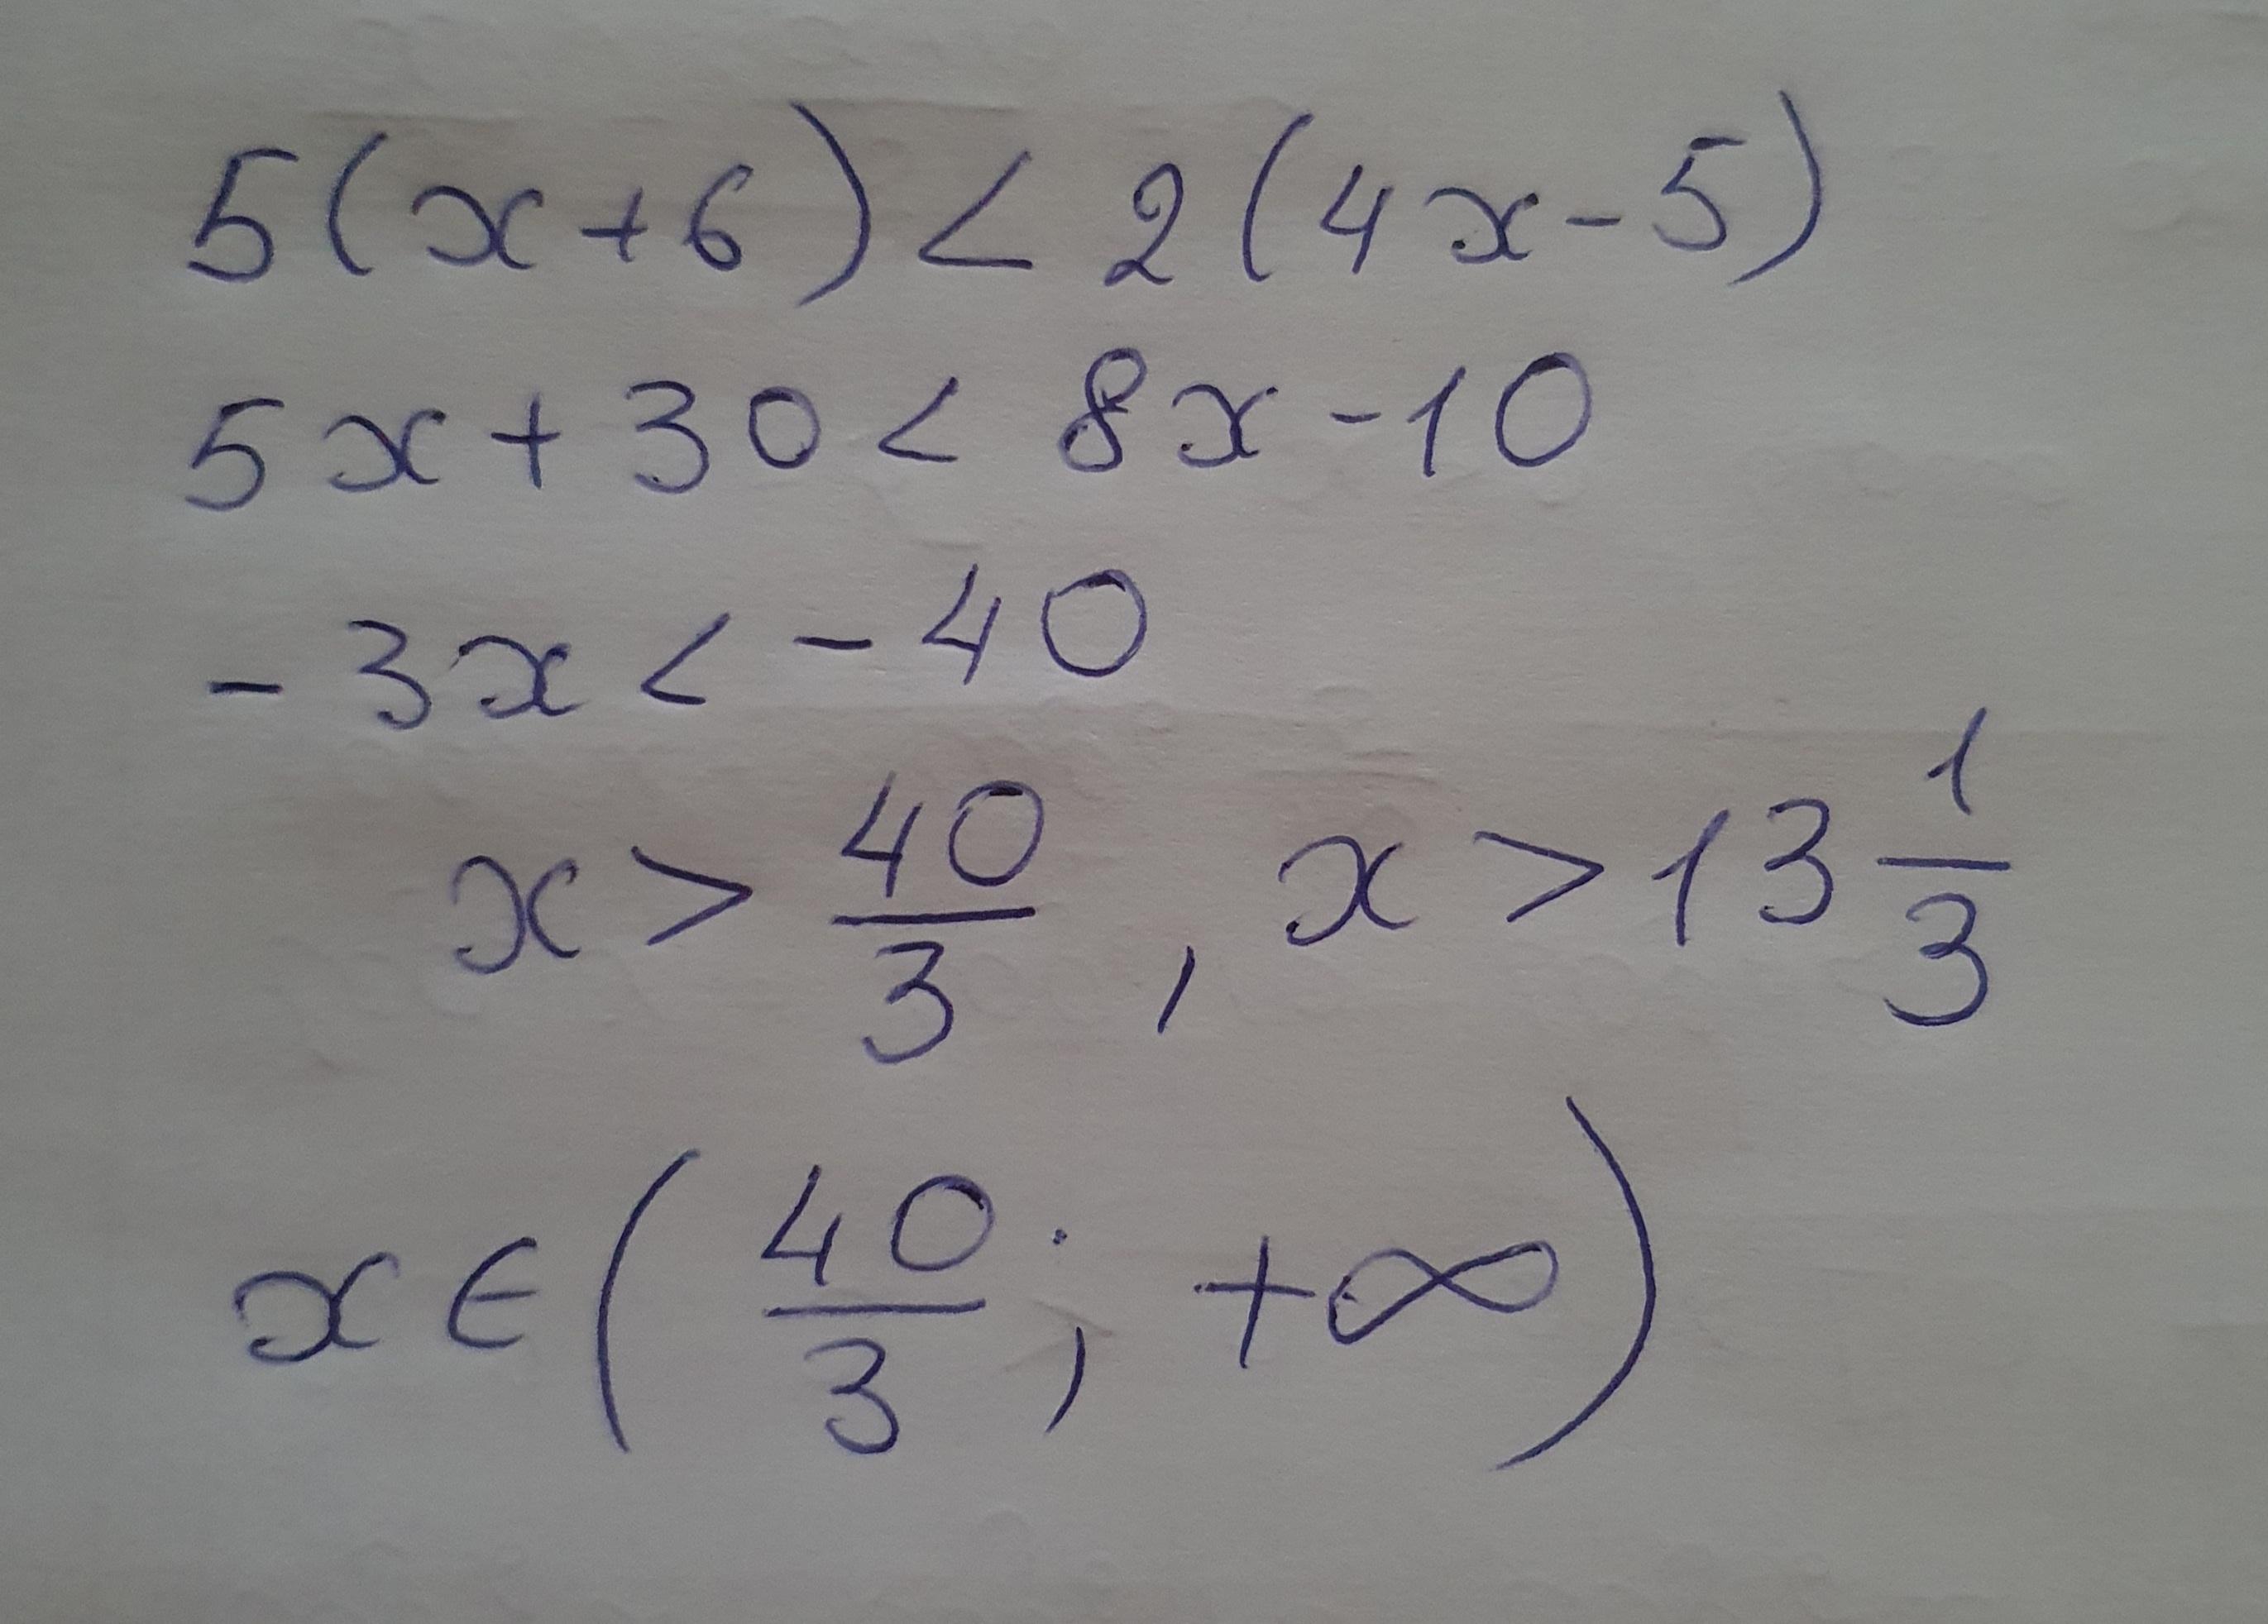 5(x+6) < 2(4x-5)
5x + 30 < 8x - 10
-3x < -40
x > 40/3 , x > 13 1/3
x ∈ (40/3 ; +∞)